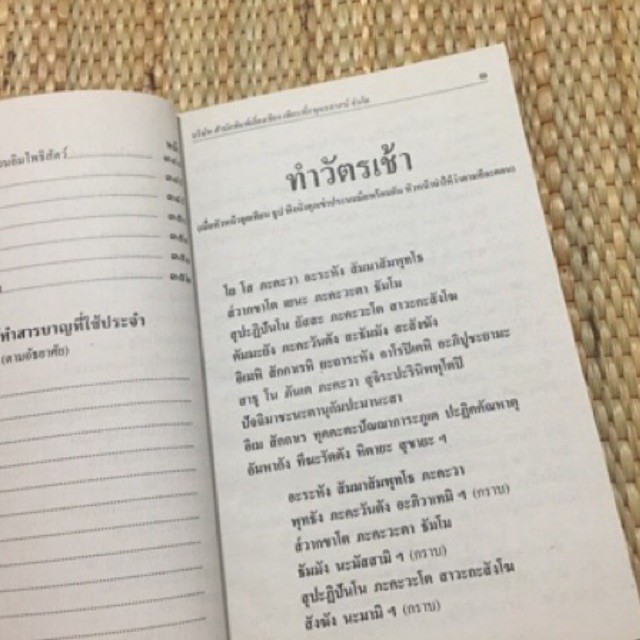 นอิมโพธิสัตว์
ทำสารบาญที่ใช้ประจำ
(ตามอัธยาศัย)
๑
ทำวัตรเช้า
โย โส ภะคะวา อะระหัง สัมมาสัมพุทโธ
ส๎วากขาโต เยนะ ภะคะวะตา ธัมโม
สุปะฏิปันโน ยัสสะ ภะคะวะโต สาวะกะสังโฆ
ตัมมะยัง ภะคะวันตัง สะธัมมัง สะสังฆัง
อิเมหิ สักกาเรหิ ยะถาระหัง อาโรปิเตหิ อะภิปูชะยามะ
สาธุ โน ภันเต ภะคะวา สุจิระปะรินิพพุโตปิ
ปัจฉิมาชะนะตานุกัมปะมานะสา
อิเม สักกาเร ทุคคะตะปัณณาการะภูเต ปะฏิคคัณหาตุ
อัมหากัง ทีฆะรัตตัง หิตายะ สุขายะ ฯ
อะระหัง สัมมาสัมพุทโธ ภะคะวา
พุทธัง ภะคะวันตัง อะภิวาเทมิ ฯ (กราบ)
ส๎วากขาโต ภะคะวะตา ธัมโม
ธัมมัง นะมัสสามิ ฯ (กราบ)
สุปะฏิปันโน ภะคะวะโต สาวะกะสังโฆ
สังฆัง นะมามิ ฯ (กราบ)